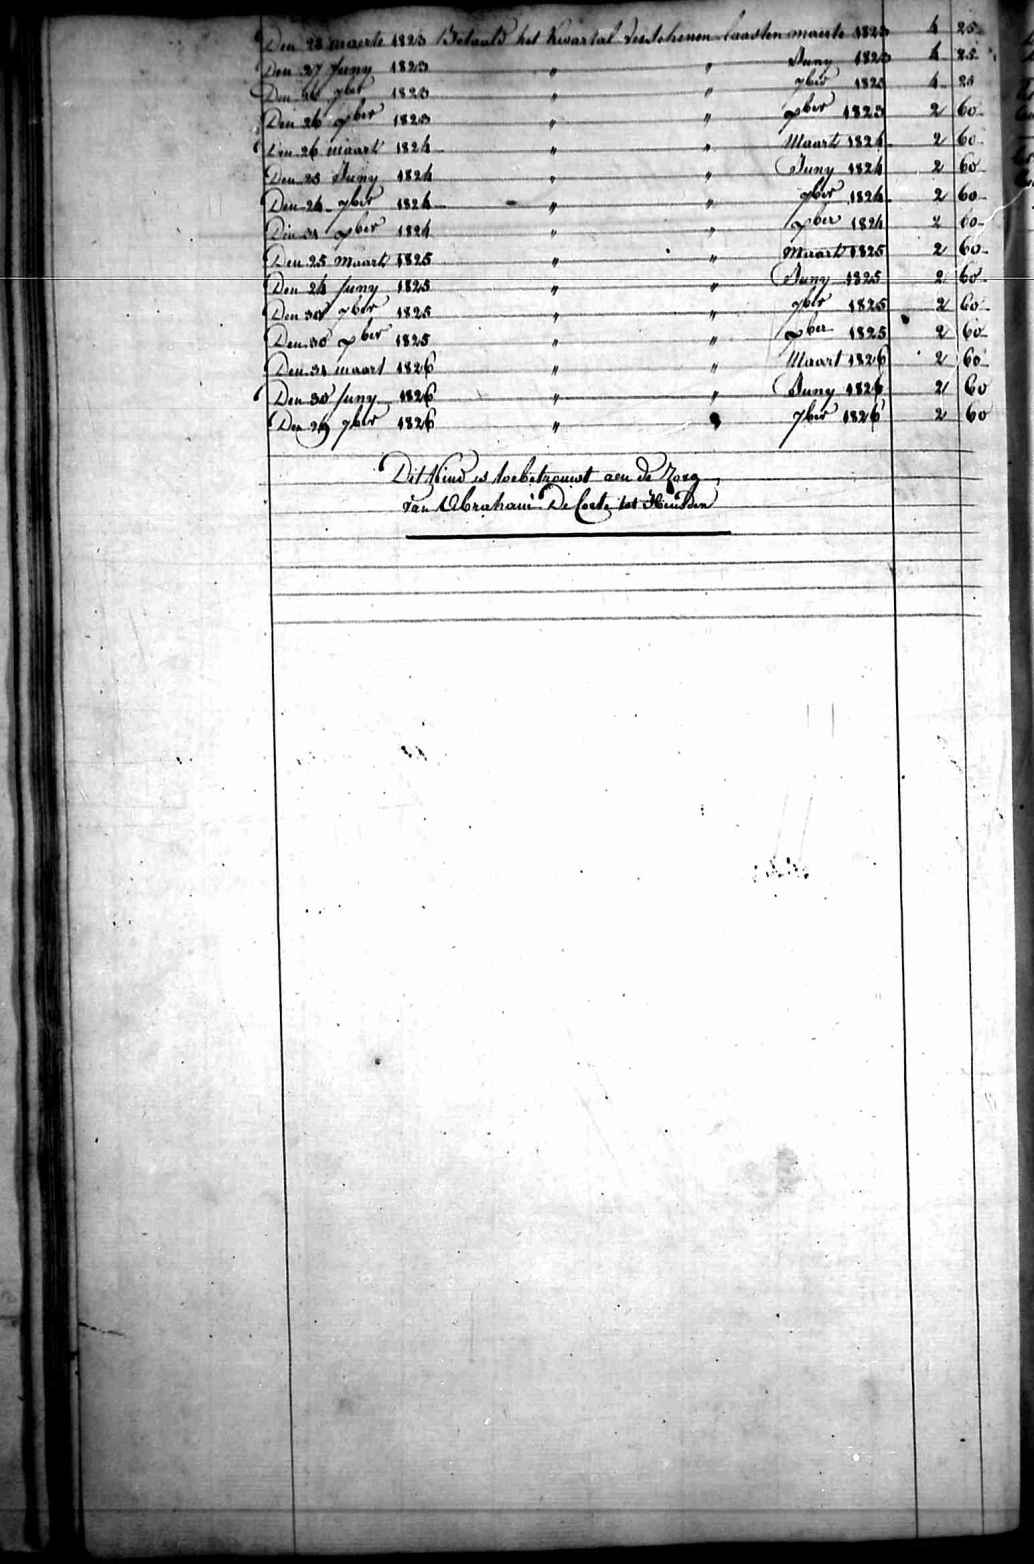 Den 28 maerte 1823 Betaald het Kwartal verschenen laasten maerte 1823 4 25
Den 27 Juny 1823 " " Juny 1823 4 25
Den 26 7ber 1823 " " 7ber 1823 4 25
Den 26 xber 1823 " " xber 1823 2 60
Den 26 maart 1824 " " Maart 1824 2 60
Den 25 Juny 1824 " " Juny 1824 2 60
Den 24 7ber 1824 " " 7ber 1824 2 60
Den 31 xber 1824 " " xber 1824 2 60
Den 25 Maart 1825 " " Maart 1825 2 60
Den 24 Juny 1825 " " Juny 1825 2 60
Den 30 7ber 1825 " " 7ber 1825 2 60
Den 30 xber 1825 " " xber 1825 2 60
Den 31 maart 1826 " " Maart 1826 2 60
Den 30 Juny 1826 " " Juny 1826 2 60
Den 29 7ber 1826 " " 7ber 1826 2 60
Dit Kind is toebetrouwt aen de Zorg
van Abraham De Corte tot Heusden